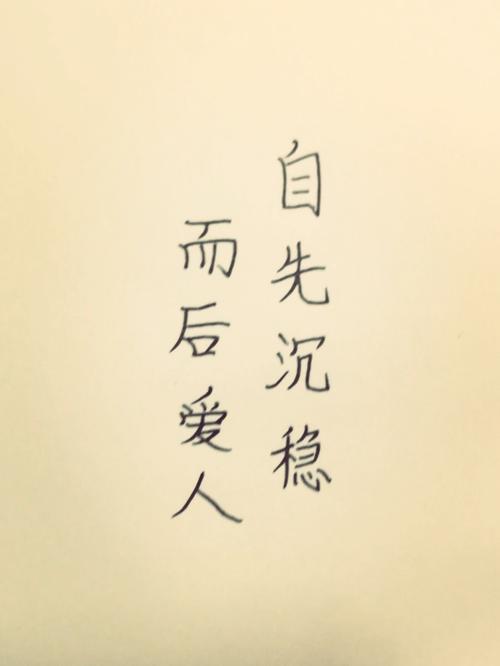 自先沉稳
而后爱人